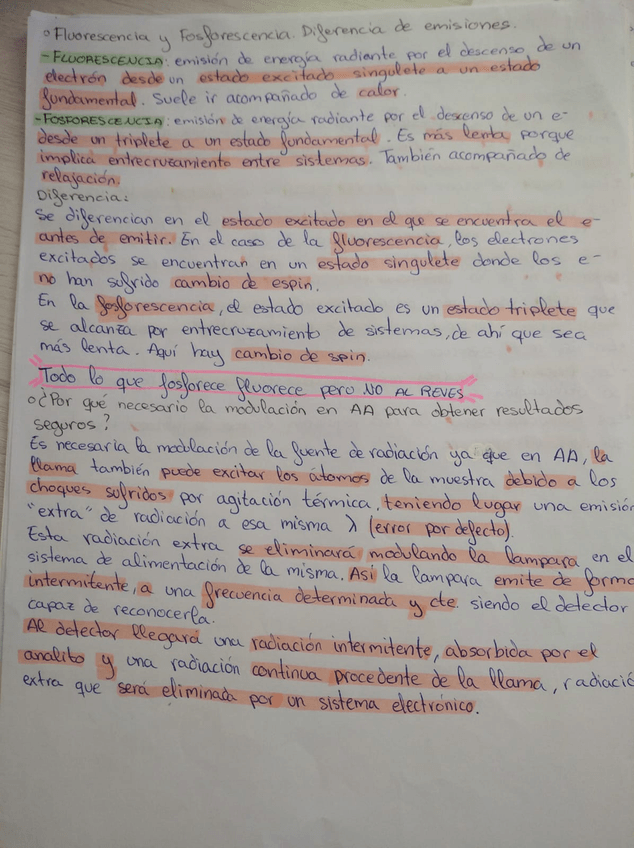 ° Fluorescencia y Fosforescencia. Diferencia de emisiones.
- FLUORESCENCIA: emisión de energía radiante por el descenso de un
electrón desde un estado excitado singulete a un estado
fundamental. Suele ir acompañado de calor.
- FOSFORESCENCIA: emisión de energía radiante por el descenso de un e-
desde un triplete a un estado fundamental. Es más lenta porque
implica entrecruzamiento entre sistemas. También acompañado de
relajación.
Diferencia:
Se diferencian en el estado excitado en el que se encuentra el e-
antes de emitir. En el caso de la fluorescencia, los electrones
excitados se encuentran en un estado singulete donde los e-
no han sufrido cambio de espin.
En la fosforescencia, el estado excitado es un estado triplete que
se alcanza por entrecruzamiento de sistemas, de ahí que sea
más lenta. Aquí hay cambio de spin.
Todo lo que fosforece fluorece pero NO AL REVES
° ¿Por qué necesario la modulación en AA para obtener resultados
seguros?
Es necesaria la modulación de la fuente de radiación ya que en AA, la
llama también puede excitar los átomos de la muestra debido a los
choques sufridos por agitación térmica, teniendo lugar una emisión
"extra" de radiación a esa misma λ (error por defecto).
Esta radiación extra se eliminará modulando la lampara en el
sistema de alimentación de la misma. Así la lampara emite de forma
intermitente, a una frecuencia determinada y cte. siendo el detector
capaz de reconocerla.
Al detector llegará una radiación intermitente, absorbida por el
analito y una radiación continua procedente de la llama, radiació
extra que será eliminada por un sistema electrónico.